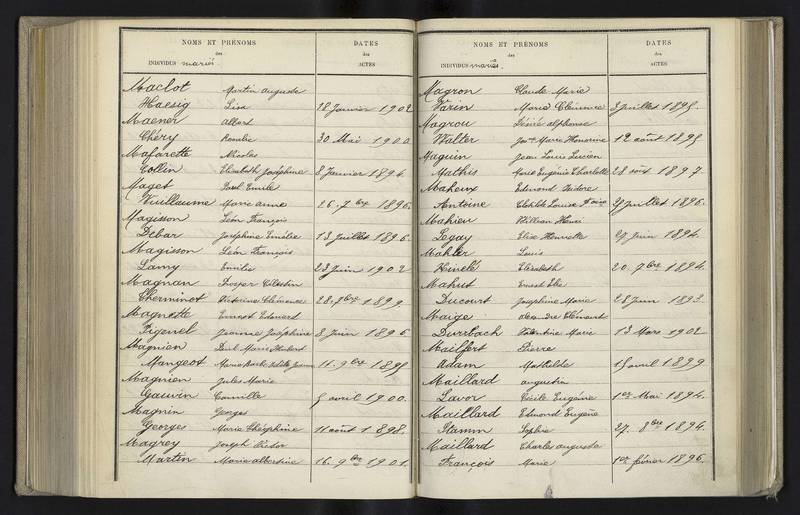 NOMS ET PRÉNOMS
des
INDIVIDUS mariés.
DATES
des
ACTES
Maclot Martin auguste
Haesig Lisa 18 Janvier 1902
Maener Albert
Chéry Rosalie 30 Mai 1900.
Mafarette Nicolas
Collin Elisabeth Joséphine 8 Janvier 1894.
Maget Paul Emile
Vuillaume Marie anne 26. 7bre 1896.
Magisson Léon François
Debar Joséphine Emélie 13 Juillet 1896.
Magisson Léon François
Lamy Emilie 23 Juin 1902
Magnan Prosper Célestin
Cherminot Victorine Clémence 28. 1899.
Magnette Ernest Edouard
Pigenel Jeanne Joséphine 8 Juin 1896
Magnien Paul Marie Hubert
Mangeot Marie 11. 9bre 1895
Magnien Jules Marie
Gauvin Camille 5 avril 1900.
Magnin Georges
Georges Marie Théophine 11 août 1898.
Magrey Joseph Victor
Martin Marie albertine 16. 9bre 1901.
NOMS ET PRÉNOMS
des
INDIVIDUS mariés.
DATES
des
ACTES
Magron Claude Marie
Varin Marie Clémence 3 Juillet 1895.
Magrou Désiré alphonse
Walter Marie Honorine 12 août 1895
Maguin Jean Louis Lucien
Mathis Marie Eugénie Charlotte 28 août 1897.
Maheux Edmond Isidore
Antoine Clotilde Louise 29 Juillet 1896.
Mahieu William Henri
Legay Elise Henriette 29 Juin 1894.
Mahler Louis
Kinelé Elisabeth 20. 7bre 1894.
Mahut Ernest Elie
Ducourt Joséphine Marie 28 Juin 1893.
Maige alexandre Clément
Durrbach Valentine Marie 13 Mars 1902
Mailfert Pierre
Adam Mathilde 15 avril 1899
Maillard augustin
Lavor Cécile Eugénie 1er Mai 1894.
Maillard Edmond Eugène
Stamm Sophie 27. 8bre 1894.
Maillard Charles auguste
François Marie 1er février 1896.